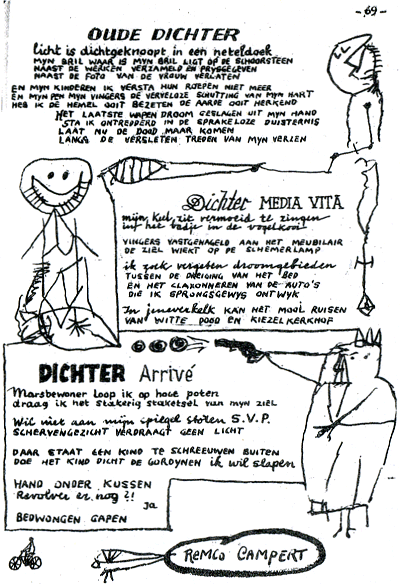 - 69 -
OUDE DICHTER
licht is dichtgeknoopt in een neteldoek
MYN BRIL WAAR IS MYN BRIL LIGT OP DE SCHOORSTEEN
NAAST DE WERKEN VERZAMELD EN PRYSGEGEVEN
NAAST DE FOTO VAN DE VROUW VERLATEN
EN MYN KINDEREN IK VERSTA HUN ROEPEN NIET MEER
EN MYN PEN MYN VINGERS DE VERVELOZE SCHUTTING VAN MYN HART
HEB IK DE HEMEL OOIT BEZETEN DE AARDE OOIT HERKEND
HET LAATSTE WAPEN DROOM GESLAGEN UIT MYN HAND
STA IK ONTREDDERD IN DE SPRAKELOZE DUISTERNIS
LAAT NU DE DOOD MAAR KOMEN
LANGS DE VERSLETEN TREDEN VAN MYN VERZEN
Dichter MEDIA VITA
mijn kiel zit vermoeid te zingen
in het badje in de vogelkooi
VINGERS VASTGENAGELD AAN HET MEUBILAIR
DE ZIEL WIEKT OP DE SCHEMERLAMP
ik zoek vergeten droomgebieden
TUSSEN DE DREIGING VAN HET BED
EN HET CLAXONNEREN VAN DE AUTO'S
DIE IK SPRONGSGEWYS ONTWYK
In jeneverkelk KAN HET MOOI RUISEN
VAN WITTE DOOD EN KIEZELKERKHOF
DICHTER Arrivé
Marsbewoner loop ik op hoge poten
draag ik het stakerig staketsel van myn ziel
Wil niet aan mijn spiegel stoten S.V.P.
SCHERVENGEZICHT VERDRAAGT GEEN LICHT
DAAR STAAT EEN KIND TE SCHREEUWEN BUITEN
DOE HET KIND DICHT DE GORDYNEN ik wil slapen
HAND ONDER KUSSEN
Revolver er nog?!
Ja
BEDWONGEN GAPEN
REMCO CAMPERT